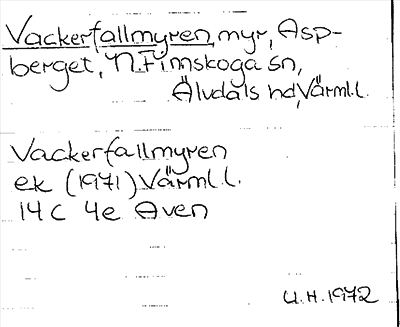 Vackerfallmyren, myr, Asp-
berget, N. Finnskoga sn,
Älvdals hd, Värml. l.
Vackerfallmyren
ek (1971) Värml. l.
14 C 4e Aven
U.H. 1972